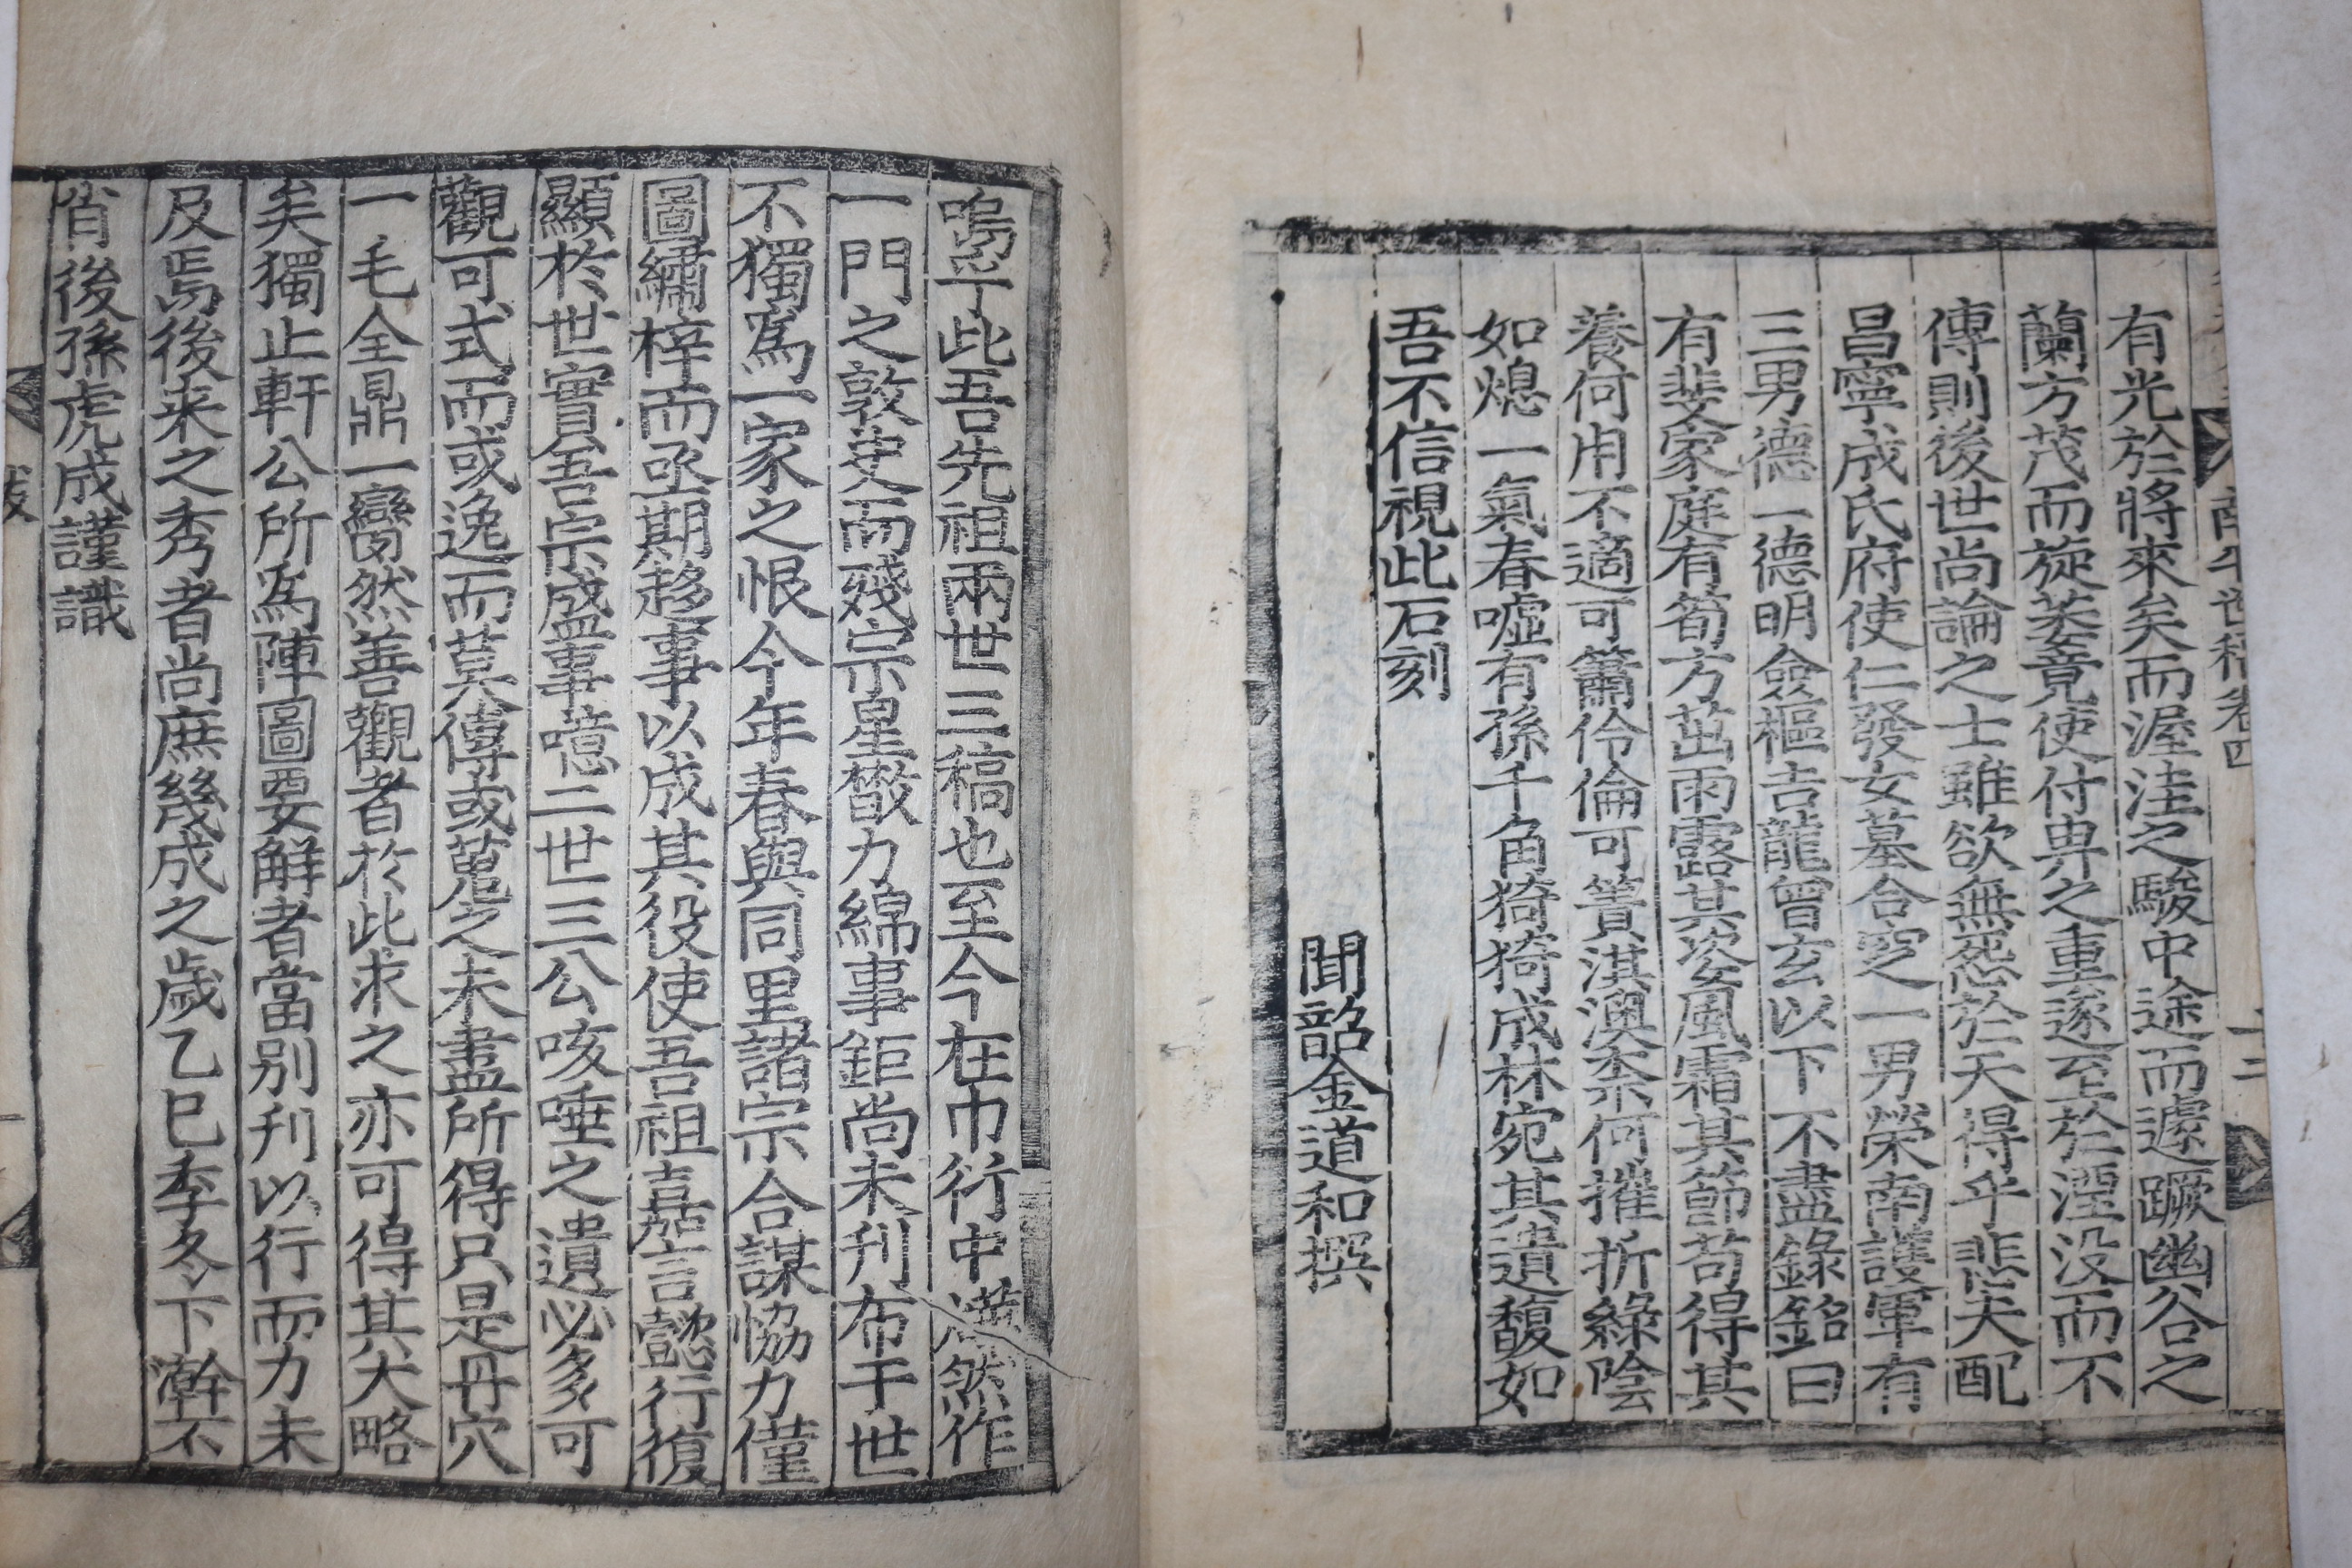 有光於將來矣而渥洼之駿中途而遽蹶幽谷之
蘭方茂而旋萎竟使付畀之重遂至於湮没而不
傳則後世尚論之士雖欲無怨於天得乎悲夫配
昌寧成氏府使仁發女墓合窆一男榮南護軍有
三男德一德明僉樞吉龍曾玄以下不盡錄銘曰
有斐家庭有筍方茁雨露其姿風霜其節苟得其
養何用不適可簫伶倫可簀淇澳柰何摧折綠陰
如熄一氣春噓有孫千角猗猗成林宛其遺馥如
吾不信視此石刻
聞韶金道和撰
嗚乎此吾先祖兩世三稿也至今在巾行中然作
一門之敦史而殘宗星散力綿事鉅尚未刋布于世
不獨爲一家之恨今年春與同里諸宗合謀恊力僅
圖繡梓而亟期趍事以成其役使吾祖嘉言懿行復
顯於世實吾宗盛事噫二世三公咳唾之遺必多可
觀可式而或逸而莫傳或蒐之未盡所得只是丹穴
一毛全鼎一臠然善觀者於此求之亦可得其大略
矣獨止軒公所爲陣圖要解者當别刋以行而力未
及焉後来之秀者尚庶幾成之歲乙巳季冬下澣不
肖後孫虎成謹識